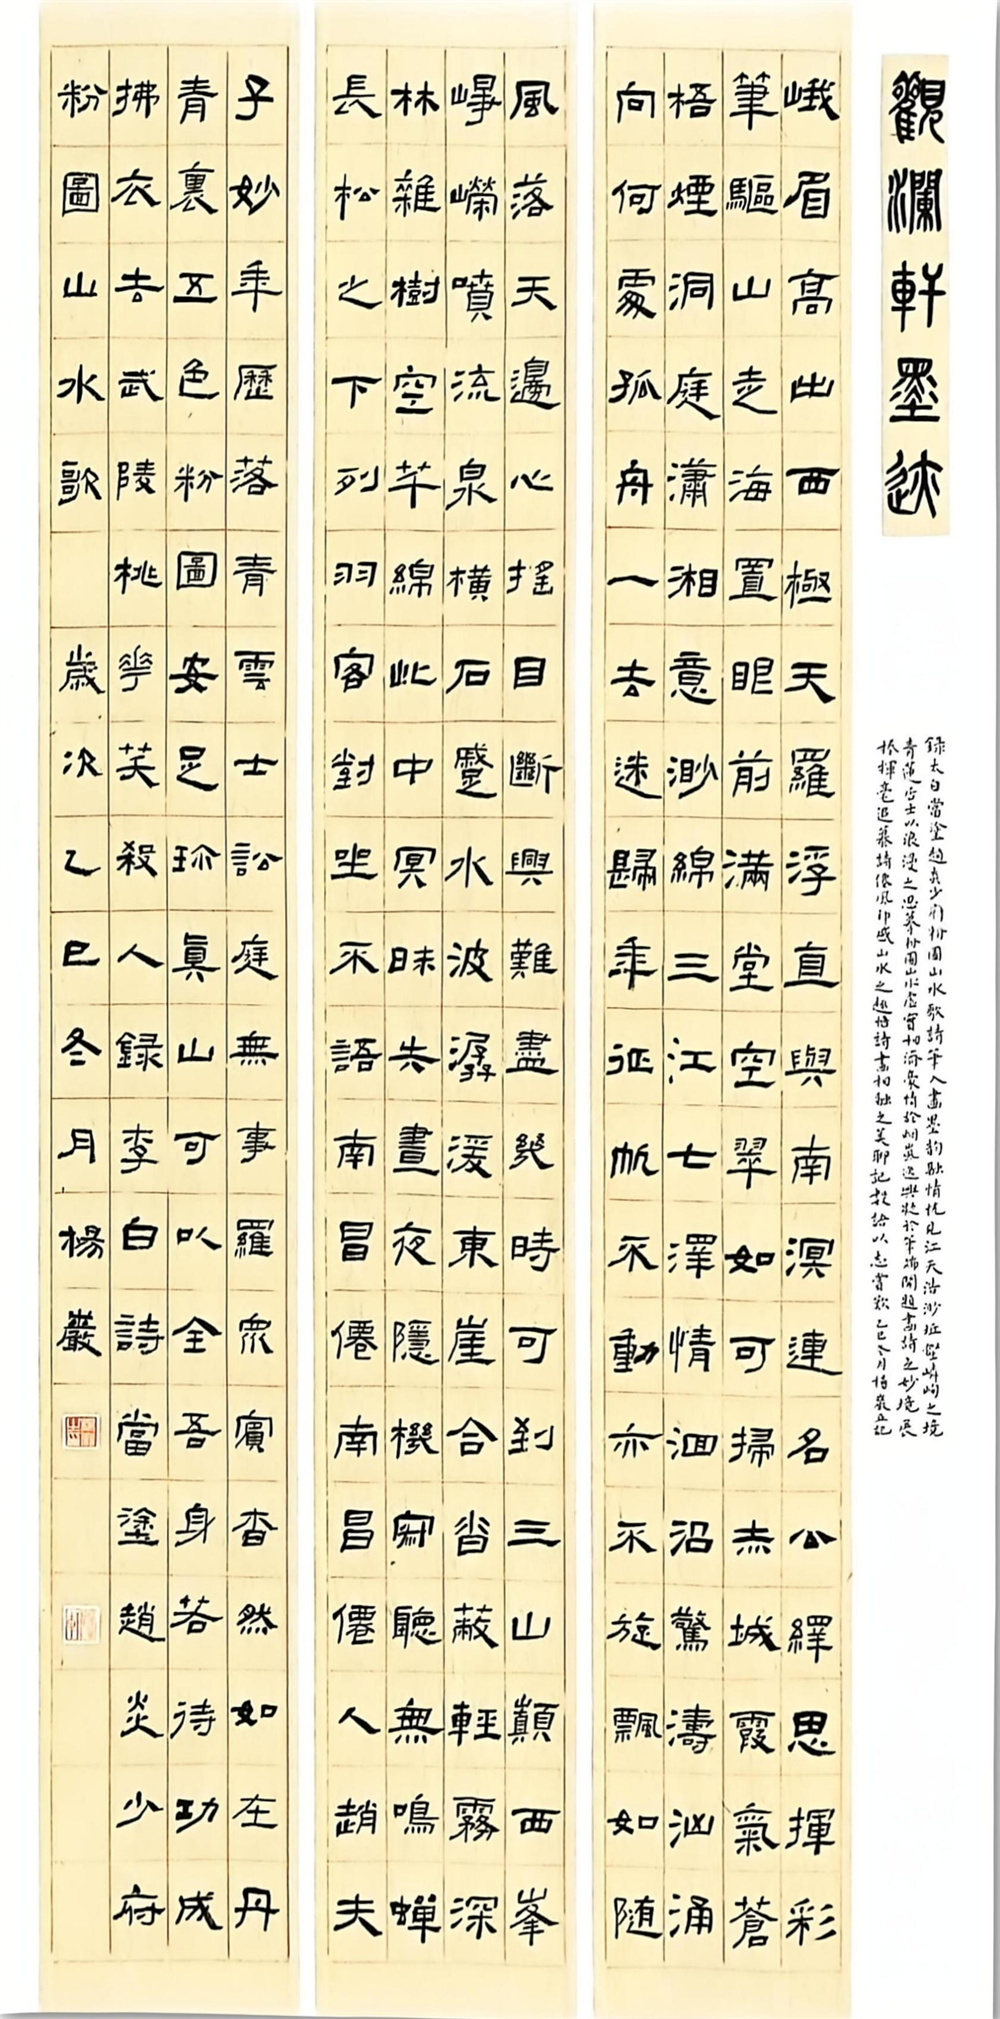 觀瀾軒墨迹
錄太白當塗趙炎少府粉圖山水歌詩筆入畫墨韵融情恍見江天浩渺丘壑嶙峋之境
青蓮居士以浪漫之思摹粉圖山水虛實相濟豪情於烟嵐逸興於筆端開題畫詩之妙境展
揮毫追慕詩風山水之趣悟詩畫相融之美聊記數語以志賞歎乙巳冬月
峨眉高出西極天羅浮直與南溟連名公繹思揮彩
筆驅山走海置眼前滿堂空翠如可掃赤城霞氣蒼
梧煙洞庭瀟湘意渺綿三江七澤情洄沿驚濤洶涌
向何處孤舟一去迷歸年征帆不動亦不旋飄如随
風落天邊心搖目斷興難盡幾時可到三山巔西峯
崢嶸噴流泉橫石蹙水波潺湲東崖合沓蔽輕霧深
林雜樹空芊綿此中冥昧失晝夜隱機寂聽無鳴蟬
長松之下列羽客對坐不語南昌僊南昌僊人趙夫
子妙年歷落青雲士訟庭無事羅眾賓杳然如在丹
青裏五色粉圖安足珍真山可以全吾身若待功成
拂衣去武陵桃花笑殺人錄李白詩當塗趙炎少府
粉圖山水歌 歲次乙巳冬月楊巖